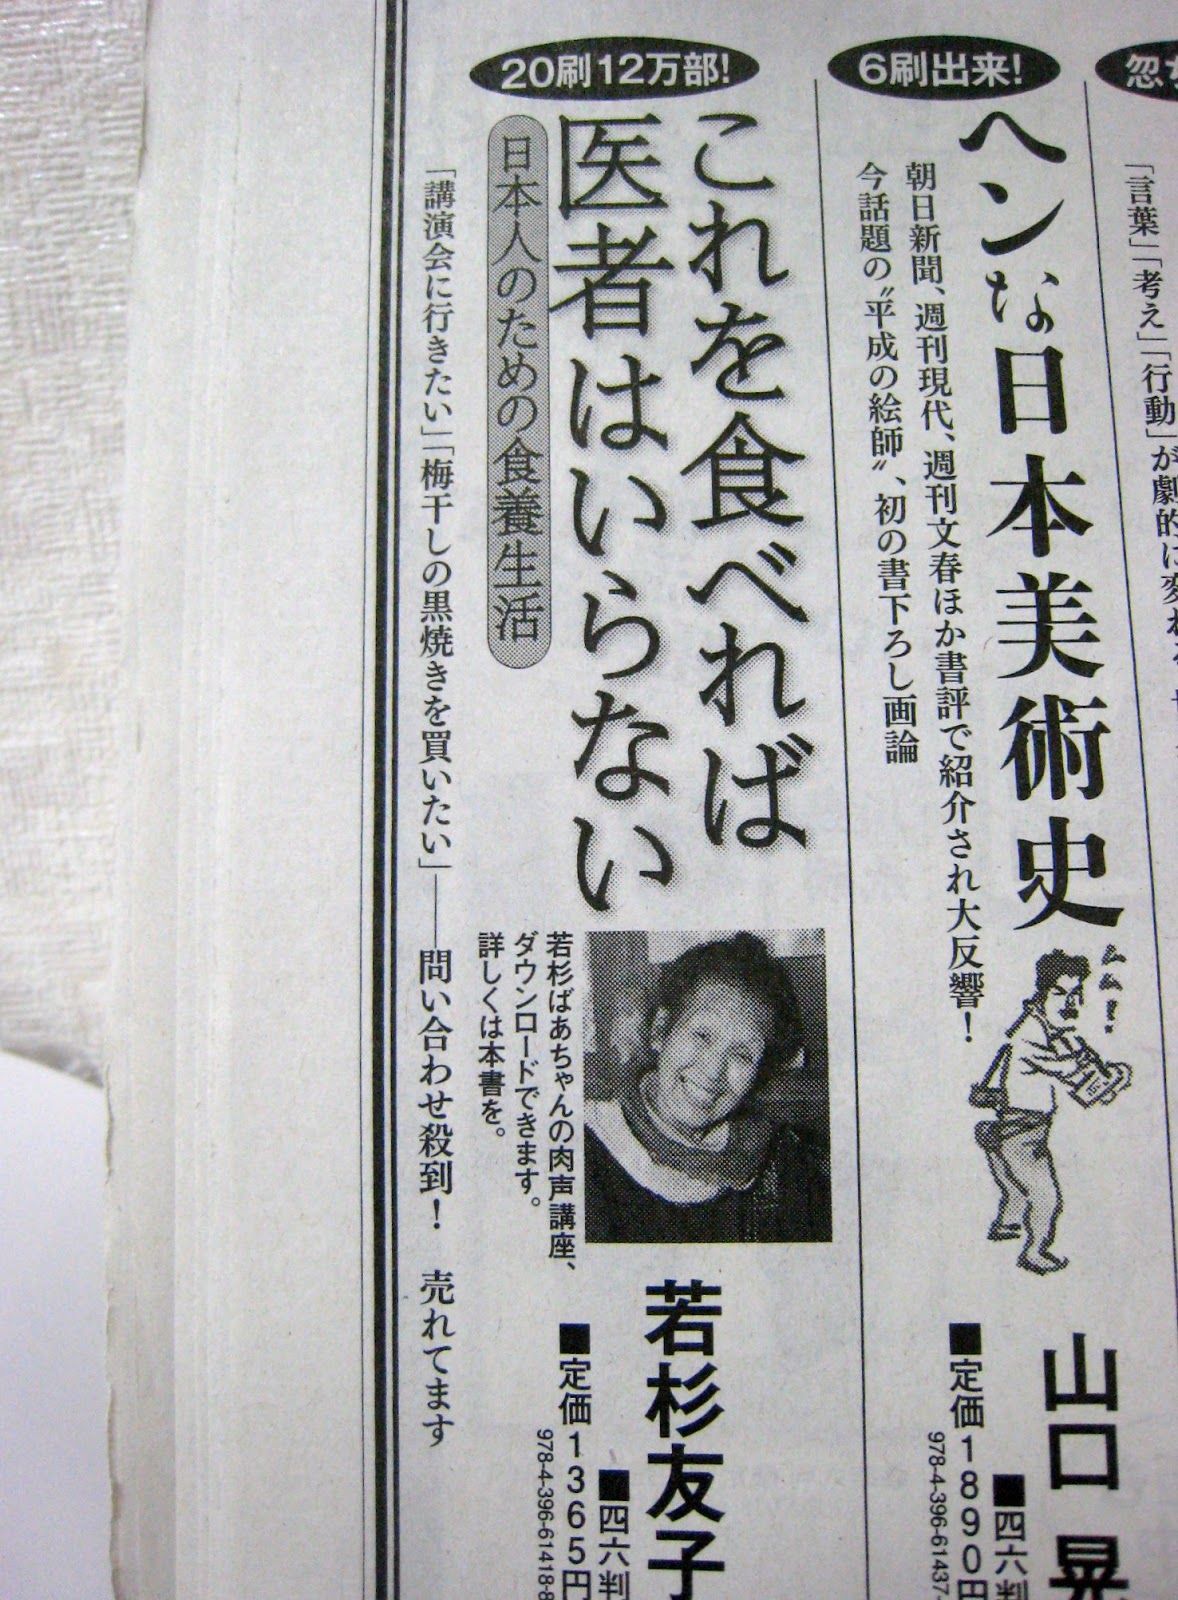 忽
「言葉」「考え」「行動」が劇的に変わる
6刷出来!
ヘンな日本美術史
朝日新聞、週刊現代、週刊文春ほか書評で紹介され大反響!
今話題の〝平成の絵師〟、初の書下ろし画論
ムム!
山口 晃
■四六判
■定価1890円
978-4-396-61437-
20刷12万部!
これを食べれば
医者はいらない
日本人のための食養生活
若杉ばあちゃんの肉声講座、
ダウンロードできます。
詳しくは本書を。
若杉友子
■四六判
■定価1365円
978-4-396-61418-8
「講演会に行きたい」「梅干しの黒焼きを買いたい」――問い合わせ殺到! 売れてます